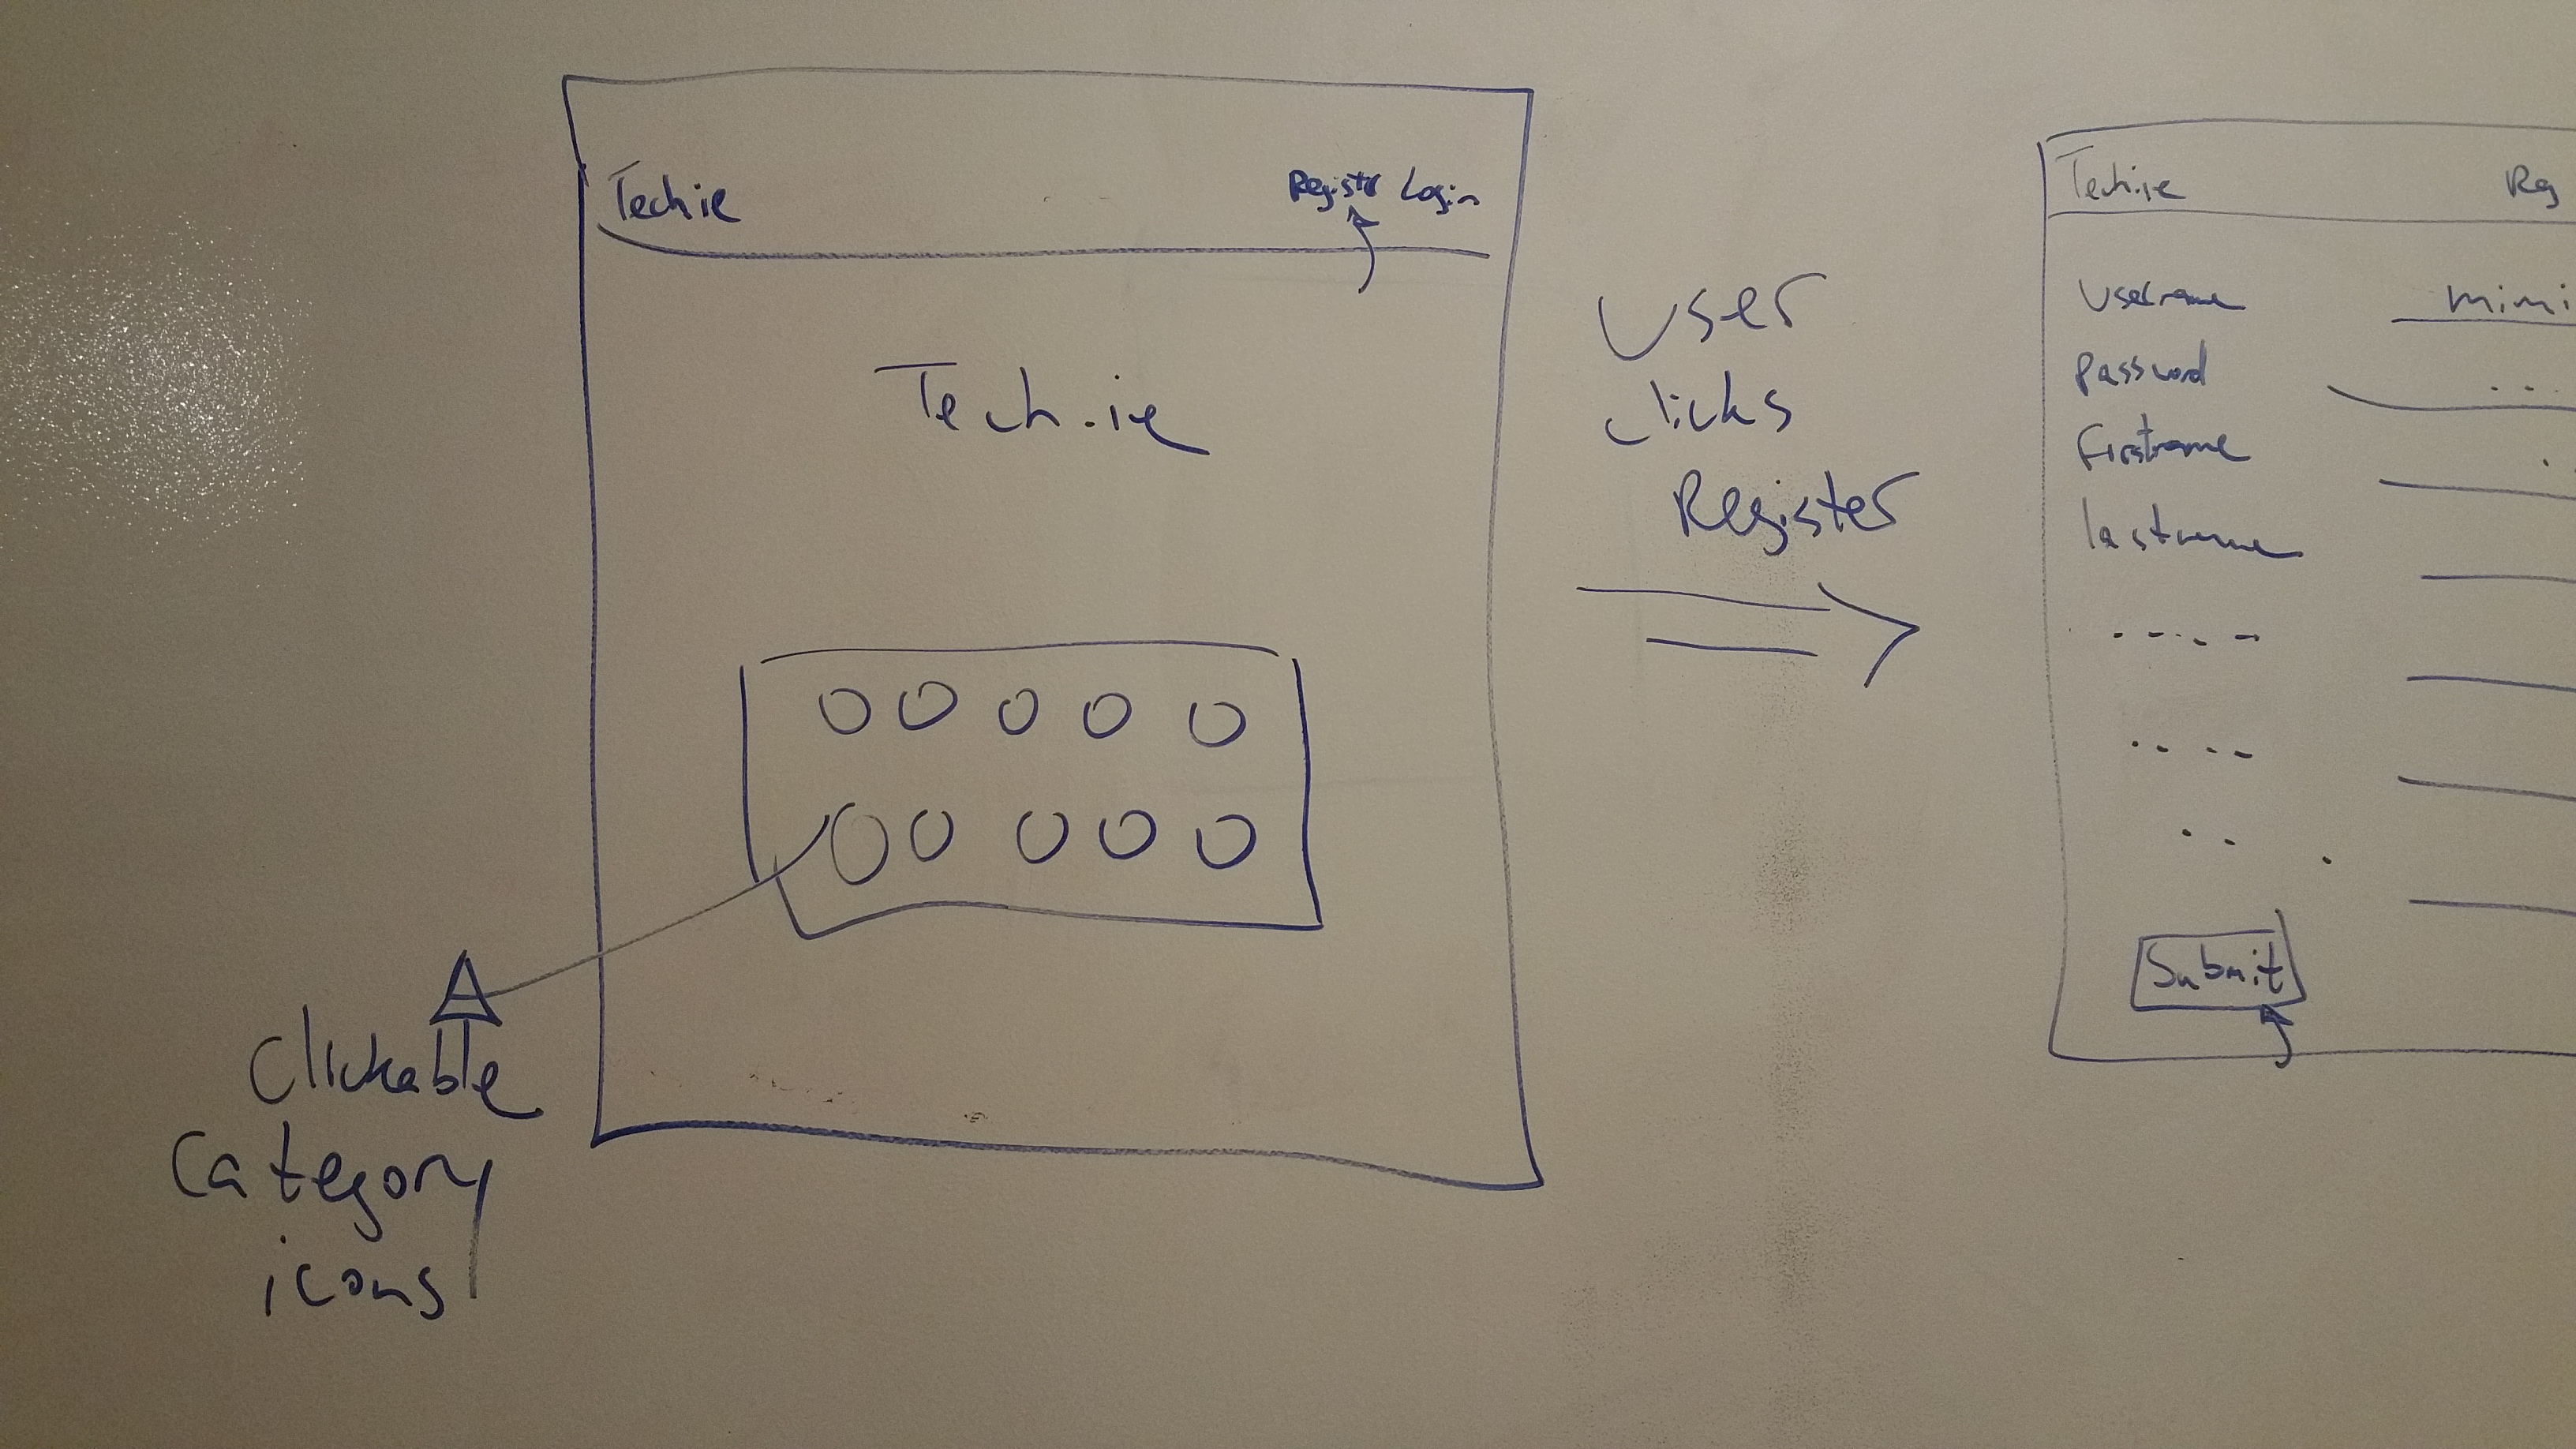 Tech.ie Register Login
Tech.ie
Clickable
Category
icons
User
clicks
Register
Tech.ie Reg
Username mimi
Password ...
firstname .
lastname
.....
....
.. .
Submit